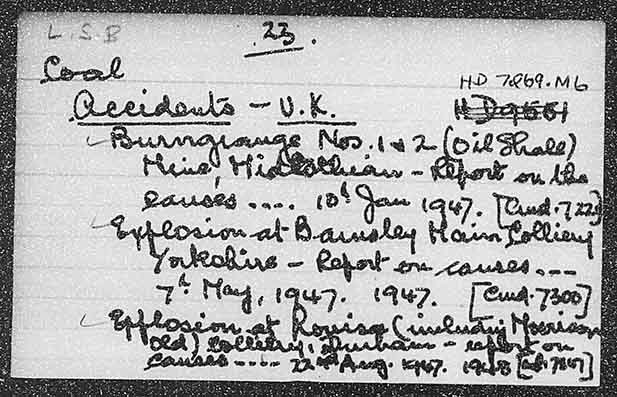 L.S.B 23.
Coal HD 7269.M6
Accidents - U.K. HD9551
Burngrange Nos. 1 & 2 (Oil Shale)
Mine, Midlothian - Report on the
causes .... 10th Jan 1947. [Cmd.722
Explosion at Barnsley Main Colliery
Yorkshire - Report on causes ...
7th May, 1947. 1947. [Cmd.7300]
Explosion at Louisa (including Morrison
Old) Colliery, Durham - report on
causes .... 22nd Aug. 1947. 1948